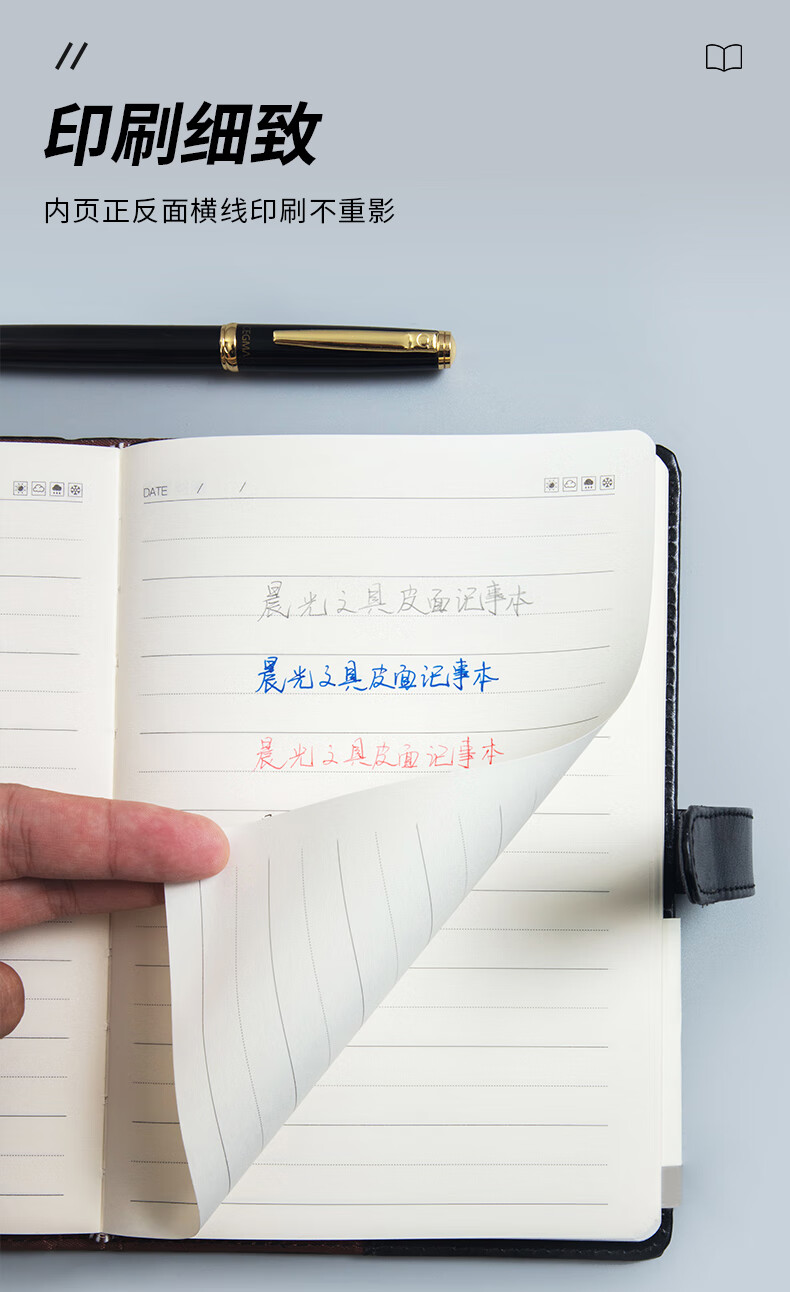 印刷细致
内页正反面横线印刷不重影
DATE / /
晨光文具皮面记事本
晨光文具皮面记事本
晨光文具皮面记事本